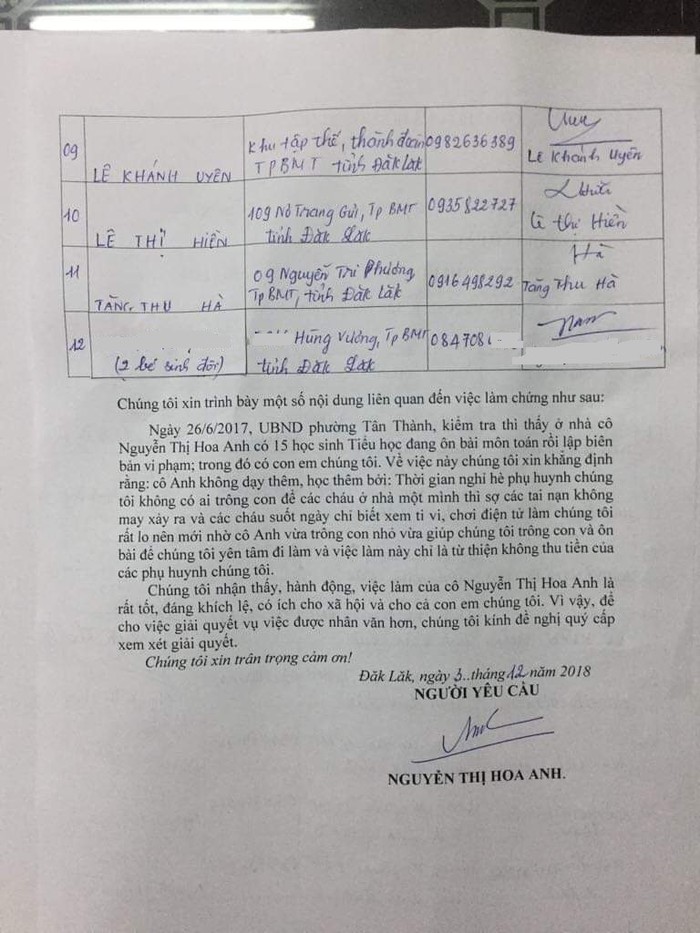 09 LÊ KHÁNH UYÊN Khu tập thể, thành đoàn TPBMT tỉnh Đăk Lăk 0982636389 Lê Khánh Uyên
10 LÊ THỊ HIỀN 109 Nơ Trang Gưh, Tp BMT tỉnh Đăk Lăk 0935822727 Lê Thị Hiền
11 TĂNG THU HÀ 09 Nguyễn Tri Phương, Tp BMT, tỉnh Đăk Lăk 0916498292 Hà Tăng Thu Hà
12 (2 bé sinh đôi) Hùng Vương, Tp BMT tỉnh Đăk Lăk 084708
Chúng tôi xin trình bày một số nội dung liên quan đến việc làm chứng như sau:
Ngày 26/6/2017, UBND phường Tân Thành, kiểm tra thì thấy ở nhà cô
Nguyễn Thị Hoa Anh có 15 học sinh Tiểu học đang ôn bài môn toán rồi lập biên
bản vi phạm; trong đó có con em chúng tôi. Về việc này chúng tôi xin khẳng định
rằng: cô Anh không dạy thêm, học thêm bởi: Thời gian nghỉ hè phụ huynh chúng
tôi không có ai trông con để các cháu ở nhà một mình thì sợ các tai nạn không
may xảy ra và các cháu suốt ngày chỉ biết xem ti vi, chơi điện tử làm chúng tôi
rất lo nên mới nhờ cô Anh vừa trông con nhỏ vừa giúp chúng tôi trông con và ôn
bài để chúng tôi yên tâm đi làm và việc làm này chỉ là từ thiện không thu tiền của
các phụ huynh chúng tôi.
Chúng tôi nhận thấy, hành động, việc làm của cô Nguyễn Thị Hoa Anh là
rất tốt, đáng khích lệ, có ích cho xã hội và cho cả con em chúng tôi. Vì vậy, để
cho việc giải quyết vụ việc được nhân văn hơn, chúng tôi kính đề nghị quý cấp
xem xét giải quyết.
Chúng tôi xin trân trọng cảm ơn!
Đăk Lăk, ngày 3..tháng 12 năm 2018
NGƯỜI YÊU CẦU
NGUYỄN THỊ HOA ANH.